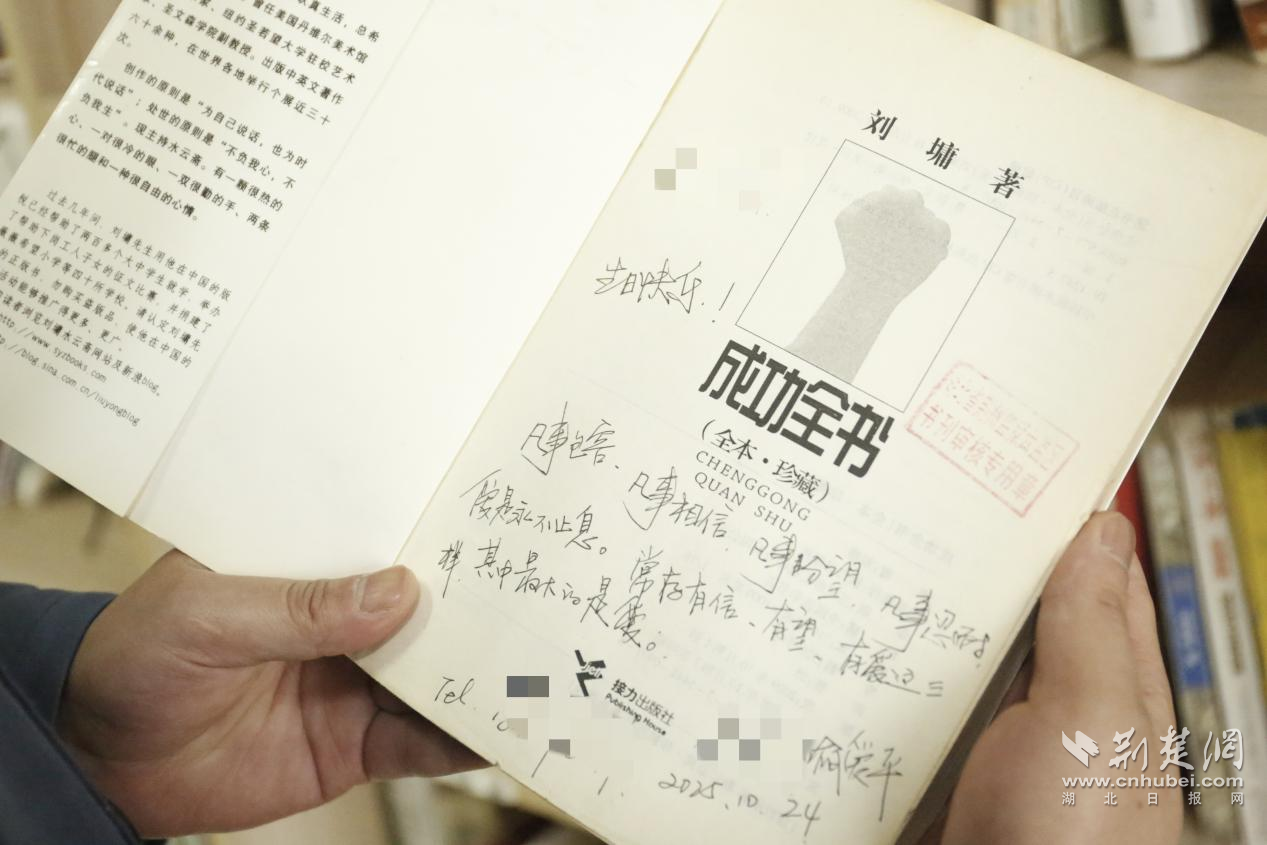 认真生活，总希
曾任美国丹维尔美术馆
家、纽约圣若望大学驻校艺术
、圣文森学院副教授。出版中英文著作
六十余种，在世界各地举行个展近三十
次。
创作的原则是“为自己说话，也为时
代说话”；处世的原则是“不负我心，不
负我生”。现主持水云斋。有一颗很热的
心、一对很冷的眼、一双很勤的手、两条
很忙的腿和一种很自由的心情。
过去几年间，刘墉先生用他在中国的版
税已经帮助了两百多个大中学生就学，举办
了帮助下岗工人子女的征文比赛，并捐建了
薇薇希望小学等四十所学校。请认定刘墉先
的正版书，勿购买盗版品，使他在中国的
活动能够推广得更多、更广。
读者浏览刘墉水云斋网站及新浪blog。
http://www.syzbooks.com
tp://blog.sina.com.cn/liuyongblog
刘墉著
生日快乐！
成功全书
（全本·珍藏）
CHENGGONG
QUAN SHU
书刊审核专用章
凡事包容、凡事相信.凡事盼望.凡事忍耐.
爱是永不止息。常存有信、有望、有爱这三
样.其中最大的是爱。
Jieli
接力出版社
Publishing House
Tel.
2025.10.24
荆楚网
www.cnhubei.com
湖北日报网